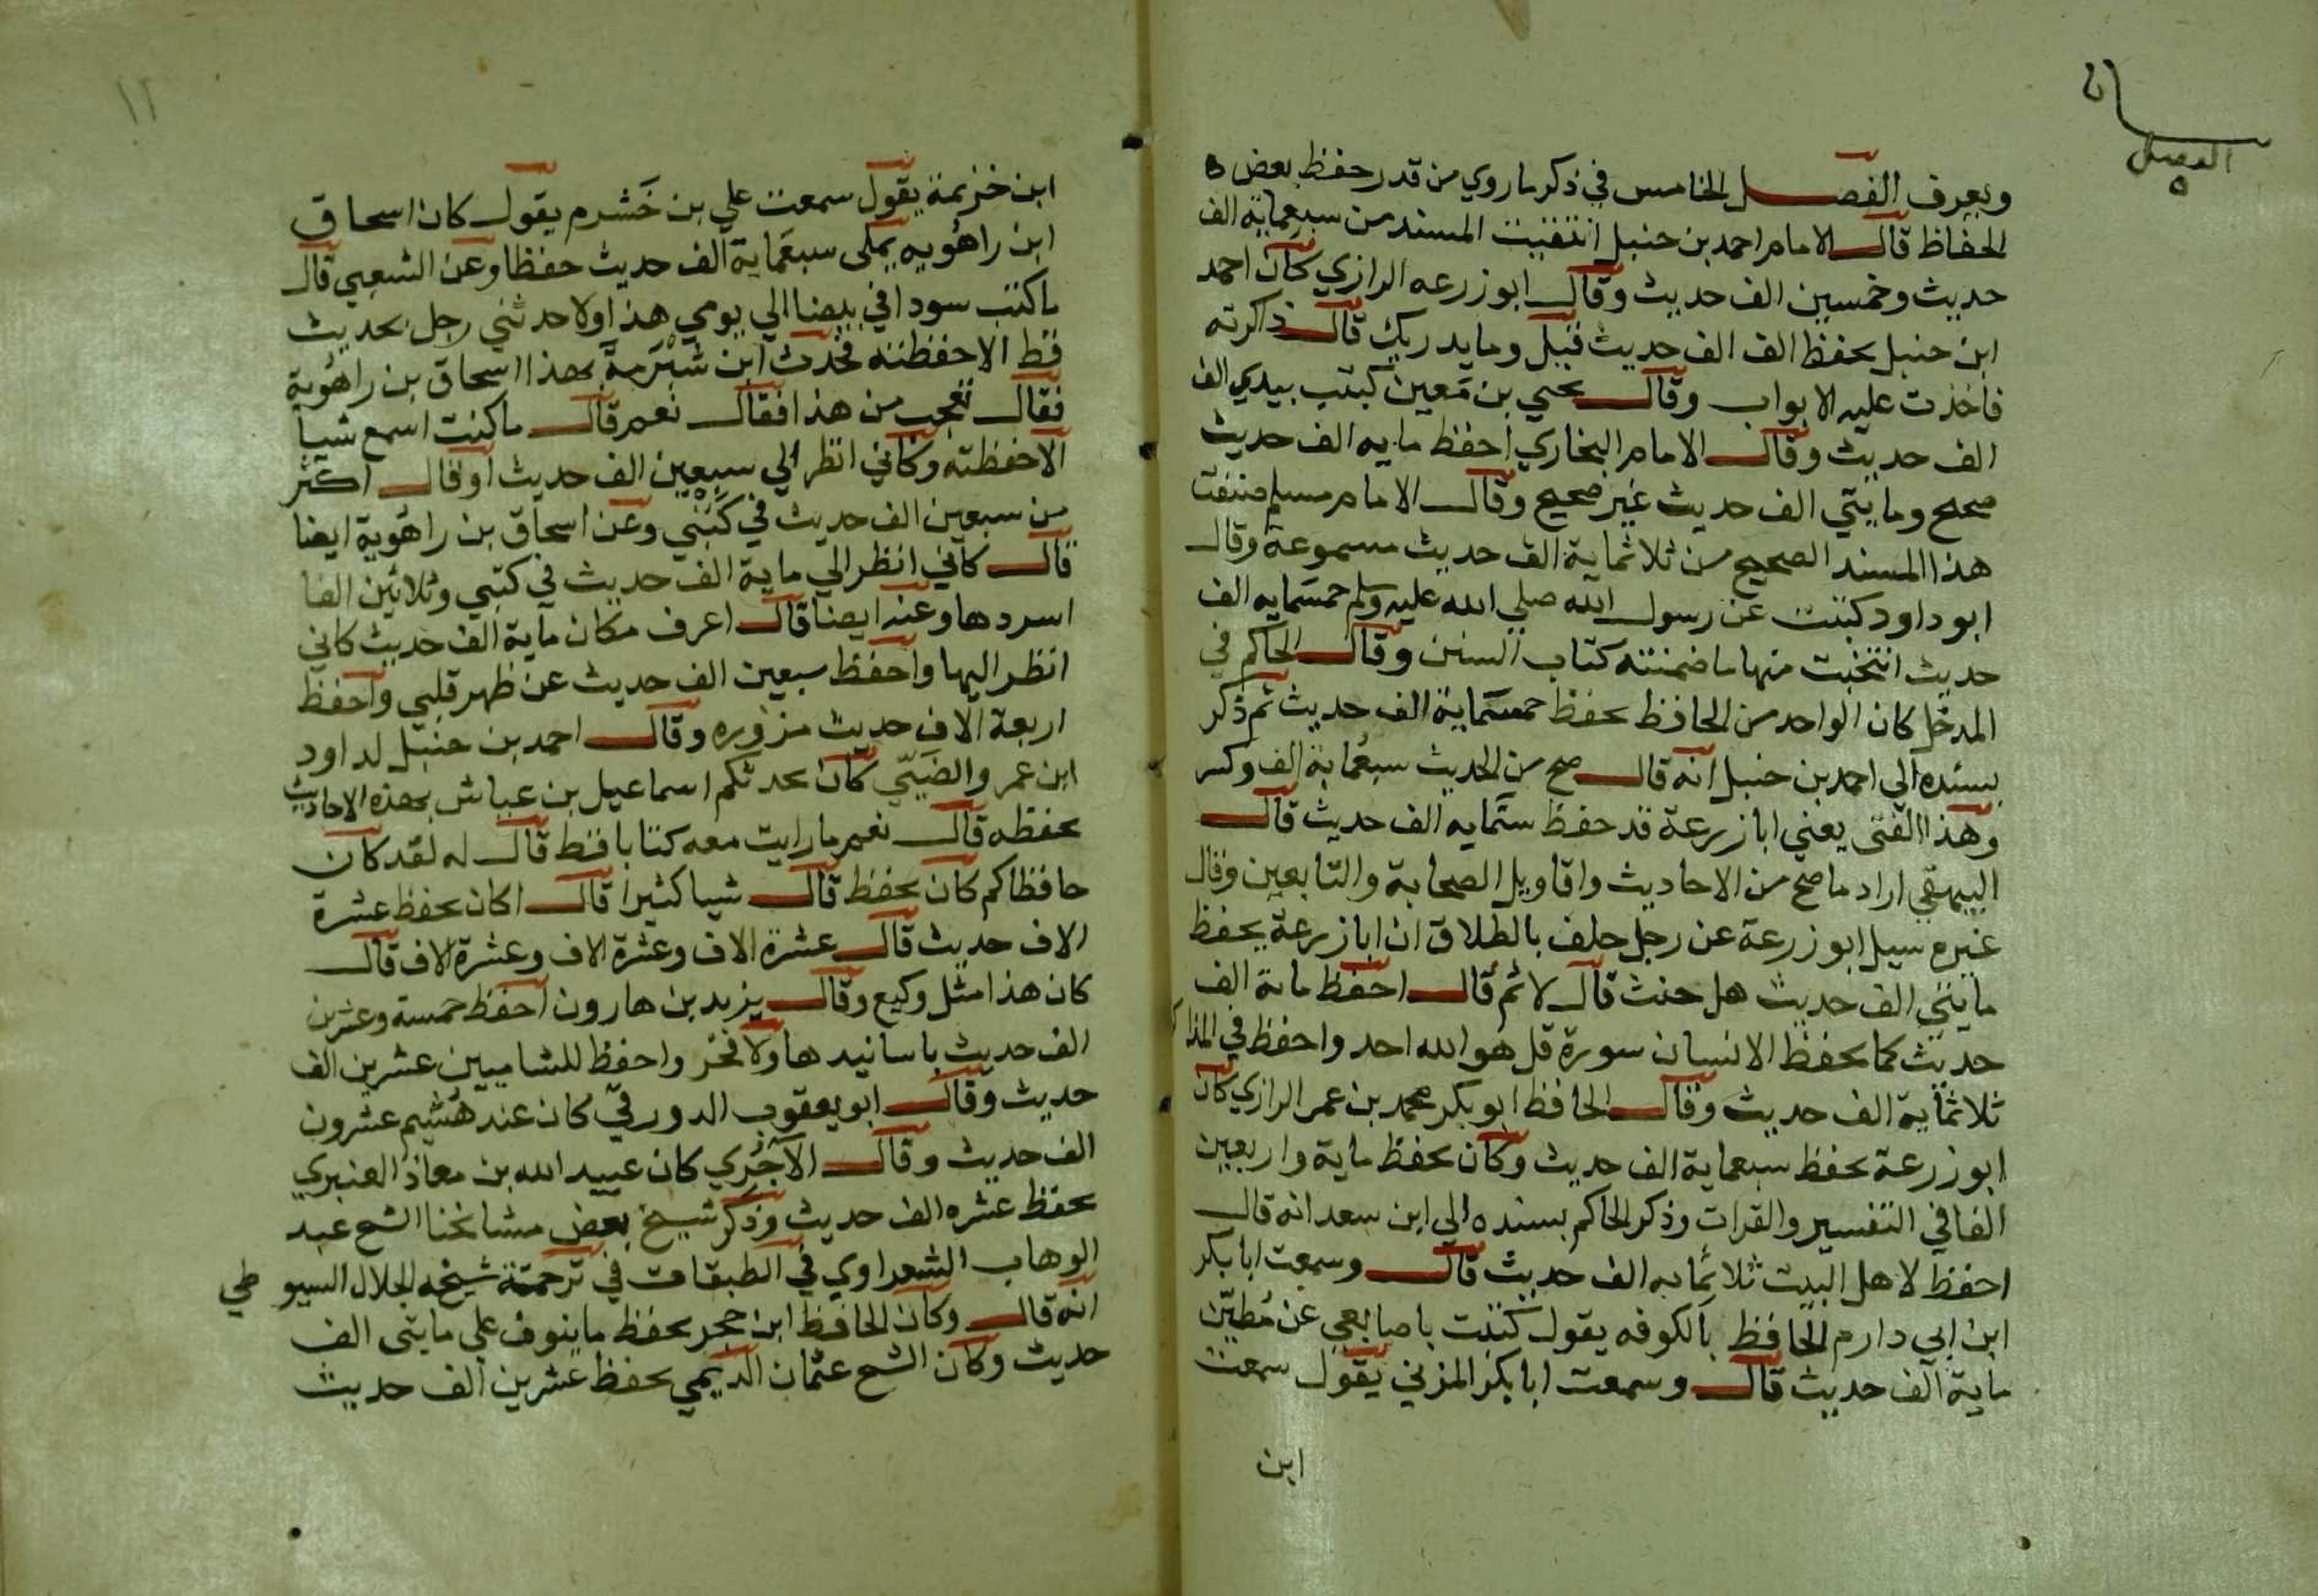 الفصل
٥
ويعرف الفصل الخامس في ذكر ما روي من قدر حفظ بعض
الحفاظ قال الامام احمد بن حنبل انتقيت المسند من سبعماية الف
حديث وخمسين الف حديث وقال ابو زرعه الرازي كان احمد
ابن حنبل يحفظ الف الف حديث قيل وما يدريك قال ذاكرته
فاخذت عليه الابواب وقال يحيي بن مَعين كتبت بيدي الف
الف حديث وقال الامام البخاري احفظ مايه الف حديث
صحيح ومايتي الف حديث غير صحيح وقال الامام مسلم صنفت
هذا المسند الصحيح من ثلاثماية الف حديث مسموعة وقال
ابو داود كتبت عن رسول الله صلي الله عليه وسلم خمسمايه الف
حديث انتخبت منها ما ضمنته كتاب السنن وقال الحاكم في
المدخل كان الواحد من الحافظ يحفظ خمسماية الف حديث ثم ذكر
بسنده الي احمد بن حنبل انه قال صح من الحديث سبعماية الف وكسر
وهذا الفتى يعني ابا زرعة قد حفظ ستمايه الف حديث قال
البيهقي اراد ما صح من الاحاديث واقاويل الصحابة والتابعين وقال
غيره سيل ابو زرعة عن رجل حلف بالطلاق ان ابا زرعة يحفظ
مايتي الف حديث هل حنث قال لا ثم قال احفظ ماية الف
حديث كما يحفظ الانسان سورة قل هو الله احد واحفظ في المذا
ثلاثماية الف حديث وقال الحافظ ابو بكر محمد بن عمر الرازي كان
ابو زرعة يحفظ سبعماية الف حديث وكان يحفظ ماية واربعين
الفا في التفسير والقرات وذكر الحاكم بسنده الي ابن سعد انه قال
احفظ لاهل البيت ثلاثمايه الف حديث قال وسمعت ابا بكر
ابن ابي دارم الحافظ بالكوفه يقول كتبت باصابعي عن مُطيّن
ماية الف حديث قال وسمعت ابا بكر المزني يقول سمعت
ابن
١٢
ابن خزيمة يقول سمعت علي بن خَشرم يقول كان اسحاق
ابن راهُويه يملى سبعماية الف حديث حفظا وعن الشعبي قال
ما كتبت سودا في بيضا الي يومي هذا ولا حدثني رجل بحديث
قط الا حفظته فحدث ابن شُبْرَمةَ بهذا اسحاق بن راهُوية
فقال تعجب من هذا فقال نعم قال ما كنت اسمع شيا
الا حفظته وكاني انظر الي سبعين الف حديث او قال اكثر
من سبعين الف حديث في كُتُبي وعن اسحاق بن راهُوية ايضا
قال كاني انظر الي ماية الف حديث في كتبي وثلاثين الفا
اسردها وعنه ايضا قال اعرف مكان ماية الف حديث كاني
انظر اليها واحفظ سبعين الف حديث عن ظهر قلبي واحفظ
اربعة الاف حديث مزوره وقال احمد بن حنبل لداود
ابن عمر والضَبّي كان يحدثكم اسماعيل بن عياش بهذه الاحاديث
بحفظه قال نعم ما رايت معه كتابا قط قال له لقد كان
حافظا كم كان يحفظ قال شيا كثيرا قال اكان يحفظ عشرة
الاف حديث قال عشرة الاف وعشرة الاف وعشرة الاف قال
كان هذا مثل وكيع وقال يزيد بن هارون احفظ خمسة وعشرين
الف حديث باسانيدها ولا فخر واحفظ للشاميين عشرين الف
حديث وقال ابو يعقوب الدورقي كان عند هُشيم عشرون
الف حديث وقال الآجُري كان عبيد الله بن معاذ العنبري
يحفظ عشره الف حديث وذكر شيخ بعض مشايخنا الشح عبد
الوهاب الشعراوي في الطبقات في ترجمة شيخه الجلال السيوطي
انه قال وكان الحافظ ابن حجر يحفظ ما ينوف علي مايتى الف
حديث وكان الشح عثمان الديمي يحفظ عشرين الف حديث